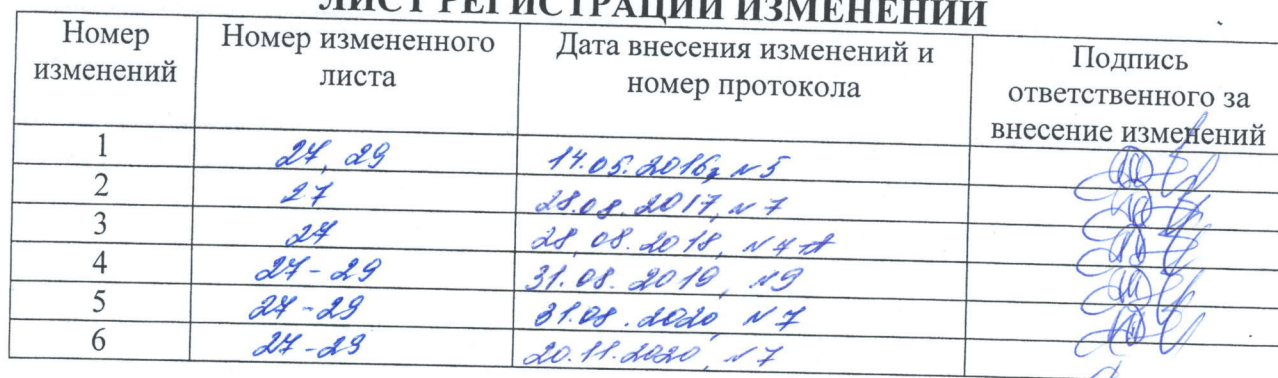 ЛИСТ РЕГИСТРАЦИИ ИЗМЕНЕНИЙ
Номер изменений
Номер измененного листа
Дата внесения изменений и номер протокола
Подпись ответственного за внесение изменений
1 27, 29 14.05.2016г N5
2 27 28.08.2017, N7
3 27 28.08.2018, N7А
4 27-29 31.08.2019, N9
5 27-29 31.08.2020, N7
6 27-29 20.11.2020, N7